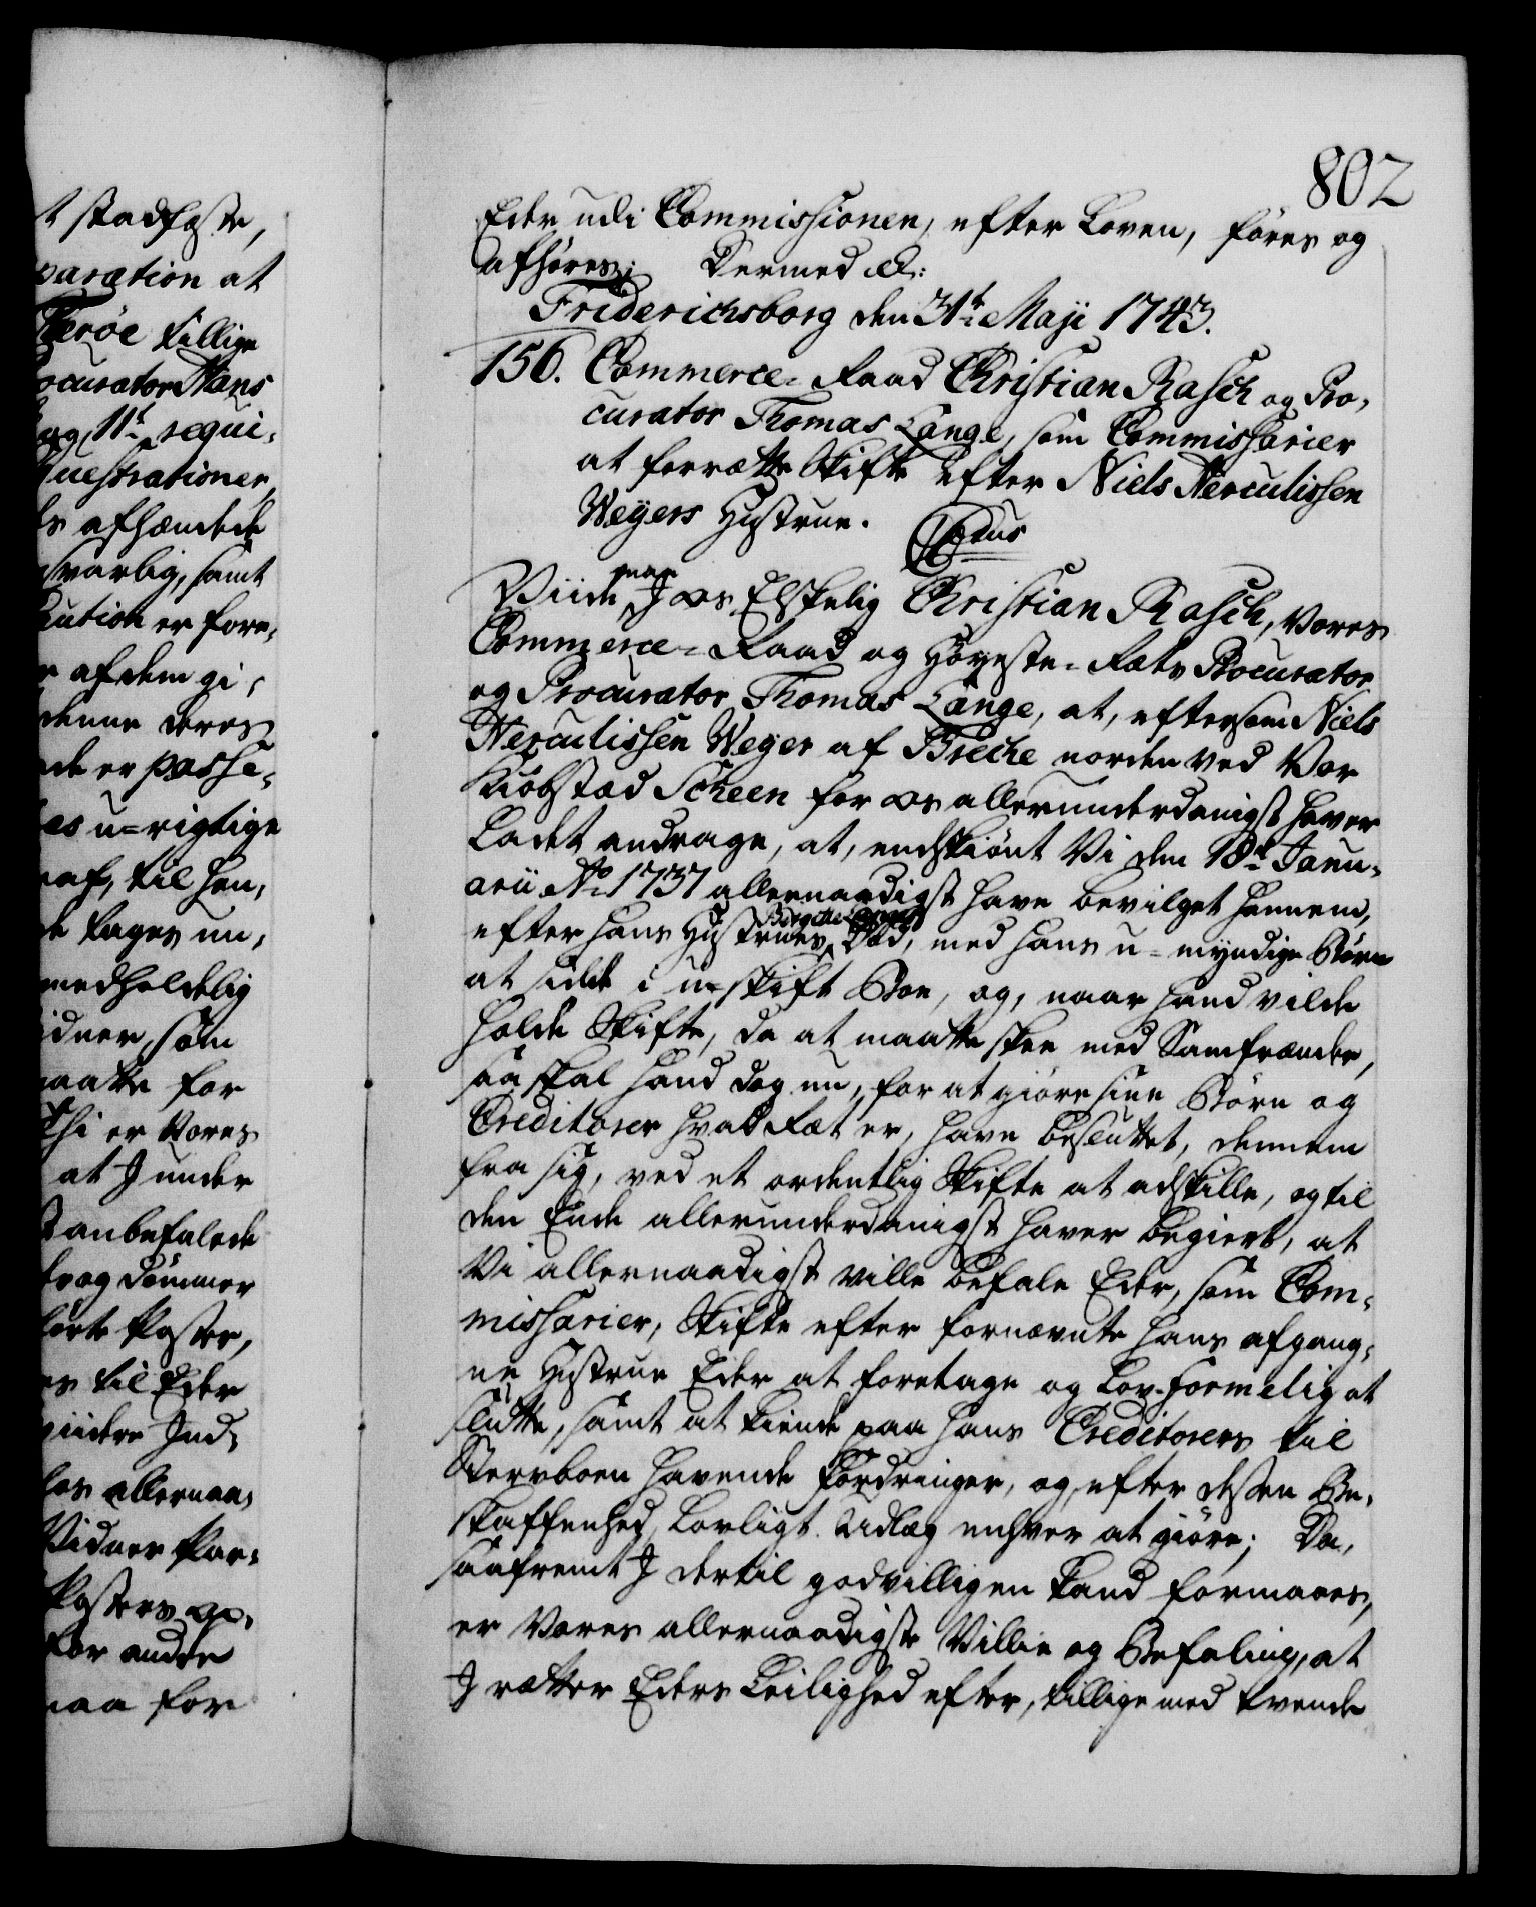 802
t stadfæste,
paration at
Herøe tillige
ocurator Hans
og 11t requi-
questrationer
ds afhændede
svarlig, samt
Caution er fore-
r af dem gi-
denne deres
de er passe-
es u-rigtige
af, til han,
de tages un-
medholdelig
idner, som
maatte for
Thi er Vores
at J under
t anbefalede
og Dommer
førte Poster,
es til Eder
Ind-
os allernaa-
Vidner
Posters
for andre
maa for
Eder udi Commissionen, efter Loven, føres og
afhøres; Dermed &:
Friderichsborg den 31t Maji 1743.
156. Commerce-Raad Christian Rasch og Pro-
curator Thomas Lange, som Commissarier
at forrætte Skifte efter Niels Herculissen
Weyers Hustrue.
Viide maa J os Elskelig Christian Rasch, Vores
Commerce-Raad og Høyeste-Rets Procurator
og Procurator Thomas Lange, at, eftersom Niels
Herculissen Weyer af Breche norden ved Vor
Kiøbstæd Scheen for os allerunderdanigst haver
Ladet andrage, at, endskiønt Vi den 18t Janu-
arii Ao 1737 allernaadigst have bevilget hannem,
efter hans Hustrues Birgitte Død, med hans u-myndige Børn
at sidde i u-skift Boe, og, naar hand vilde
holde Skifte, da at maatte skee med Samfrænder,
saa skal hand dog nu, for at giøre sine Børn og
Creditorer hvad Ræt er, have besluttet, dennem
fra sig, ved et ordentlig Skifte at adskille, og til
den Ende allerunderdanigst haver begiert, at
Vi allernaadigst ville befale Eder, som Com-
missarier, Skifte efter fornævnte hans afgang-
ne Hustrue Eder at foretage og Lov-formelig at
slutte, samt at kiende paa hans Creditorers til
Stervboen havende Fordringer, og, efter dessen Be-
skaffenhed, Lovligt Udlæg enhver at giøre; Da,
saafremt J dertil godvilligen kand formaaes,
er Vores allernaadigste Villie og Befaling, at
J rætter Eders Leilighed efter, tillige med tvende